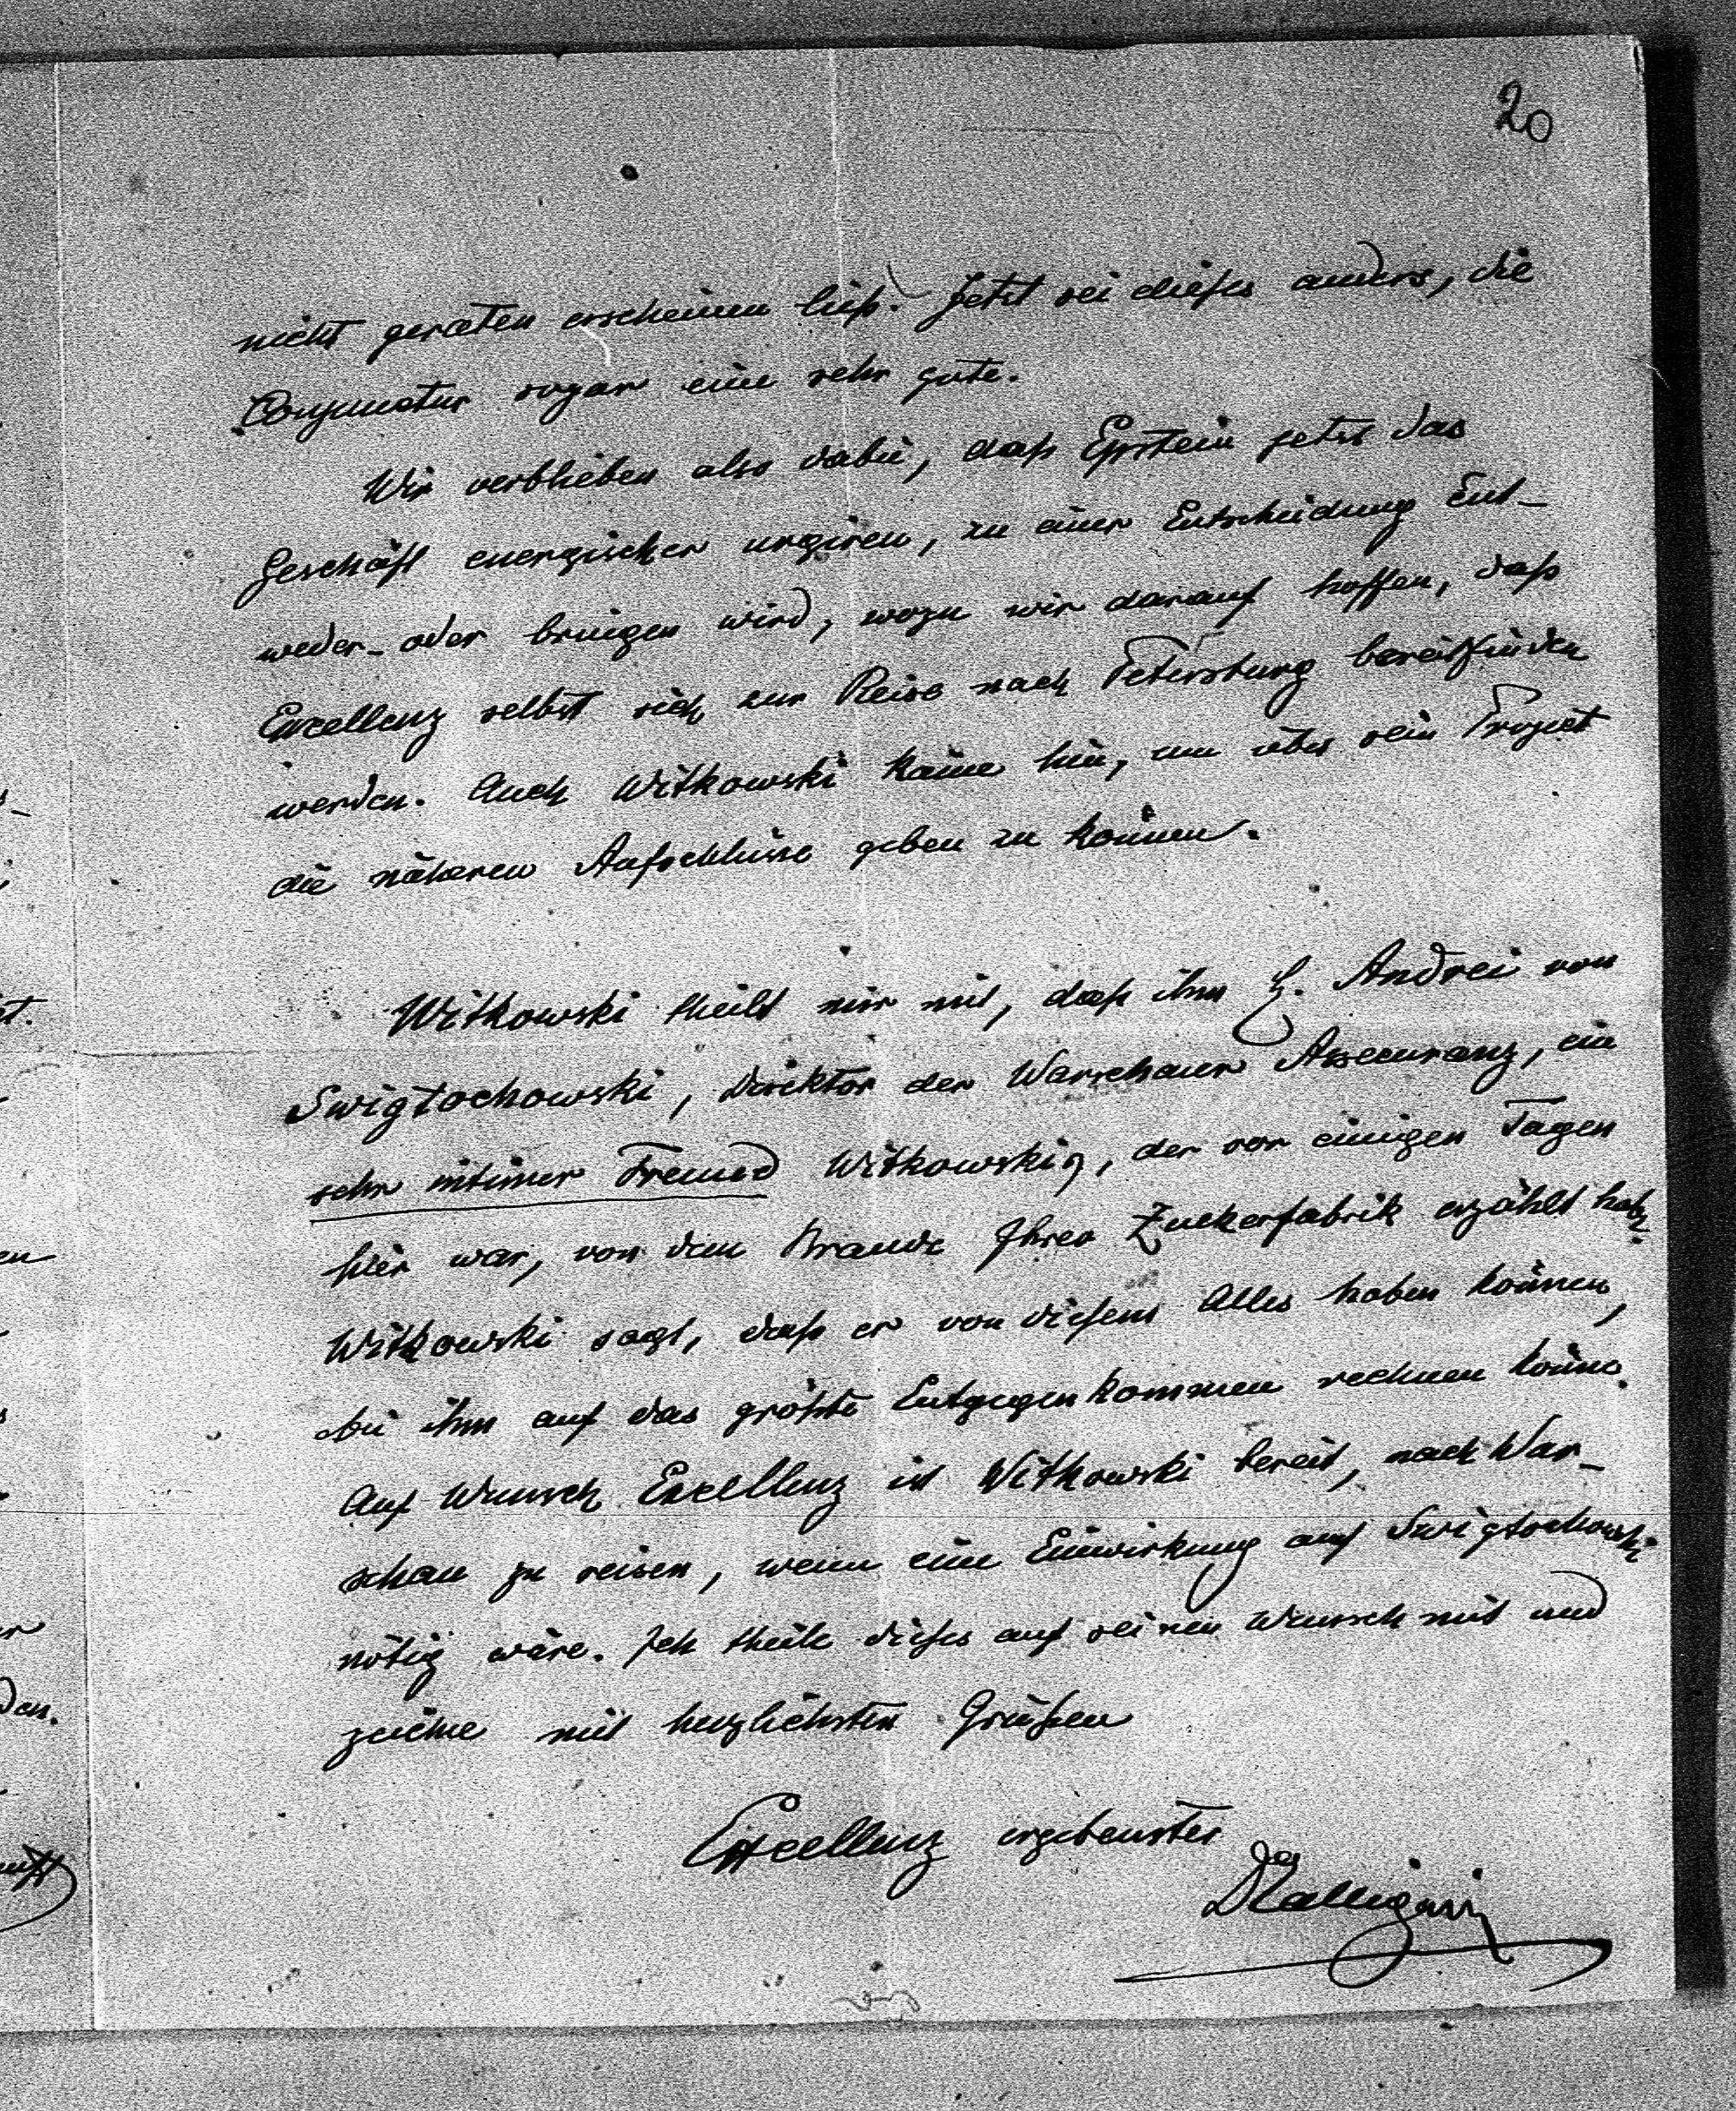 20
nicht geraten erscheinen ließ. Jetzt sei dieses anders, die
Conjunctur sogar eine sehr gute.
Wir verblieben also dabei, daß Epstein jetzt das
Geschäft energischer urgiren, zu einer Entscheidung Ent-
weder-oder bringen wird, wozu wir darauf hoffen, daß
Excellenz selbst sich zur Reise nach Petersburg bereitfinden
werden. Auch Witkowski käme hin, um über sein Project
die näheren Aufschlüsse geben zu können.
Witkowski theilt mir mit, daß ihm H. Andrei von
Swigtochowski, Direktor der Warschauer Assecuranz, ein
sehr intimer Freund Witkowskis, der vor einigen Tagen
hier war, von dem Brande Ihrer Zuckerfabrik erzählt hat.
Witkowski sagt, daß er von diesem Alles haben können,
bei ihm auf das größte Entgegenkommen rechnen könne.
Auf Wunsch Excellenz ist Witkowski bereit, nach War-
schau zu reisen, wenn eine Einwirkung auf Swigtochowski
nötig wäre. Ich theile dieses auf seinen Wunsch mit und
zeichne mit herzlichsten Grüßen
Excellenz ergebenster